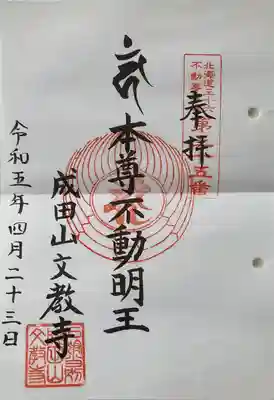 奉拝
北海道三十六
不動尊
第五番
本尊不動明王
成田山文教寺
令和五年四月二十三日